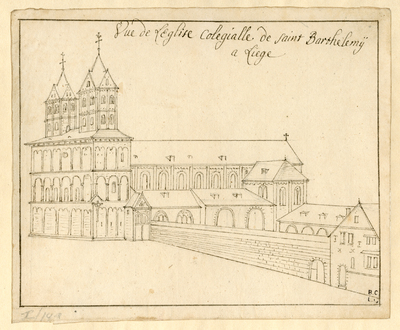 Vuë de LEglise Colegialle de saint Barthelemÿ
a Liege
B.C.